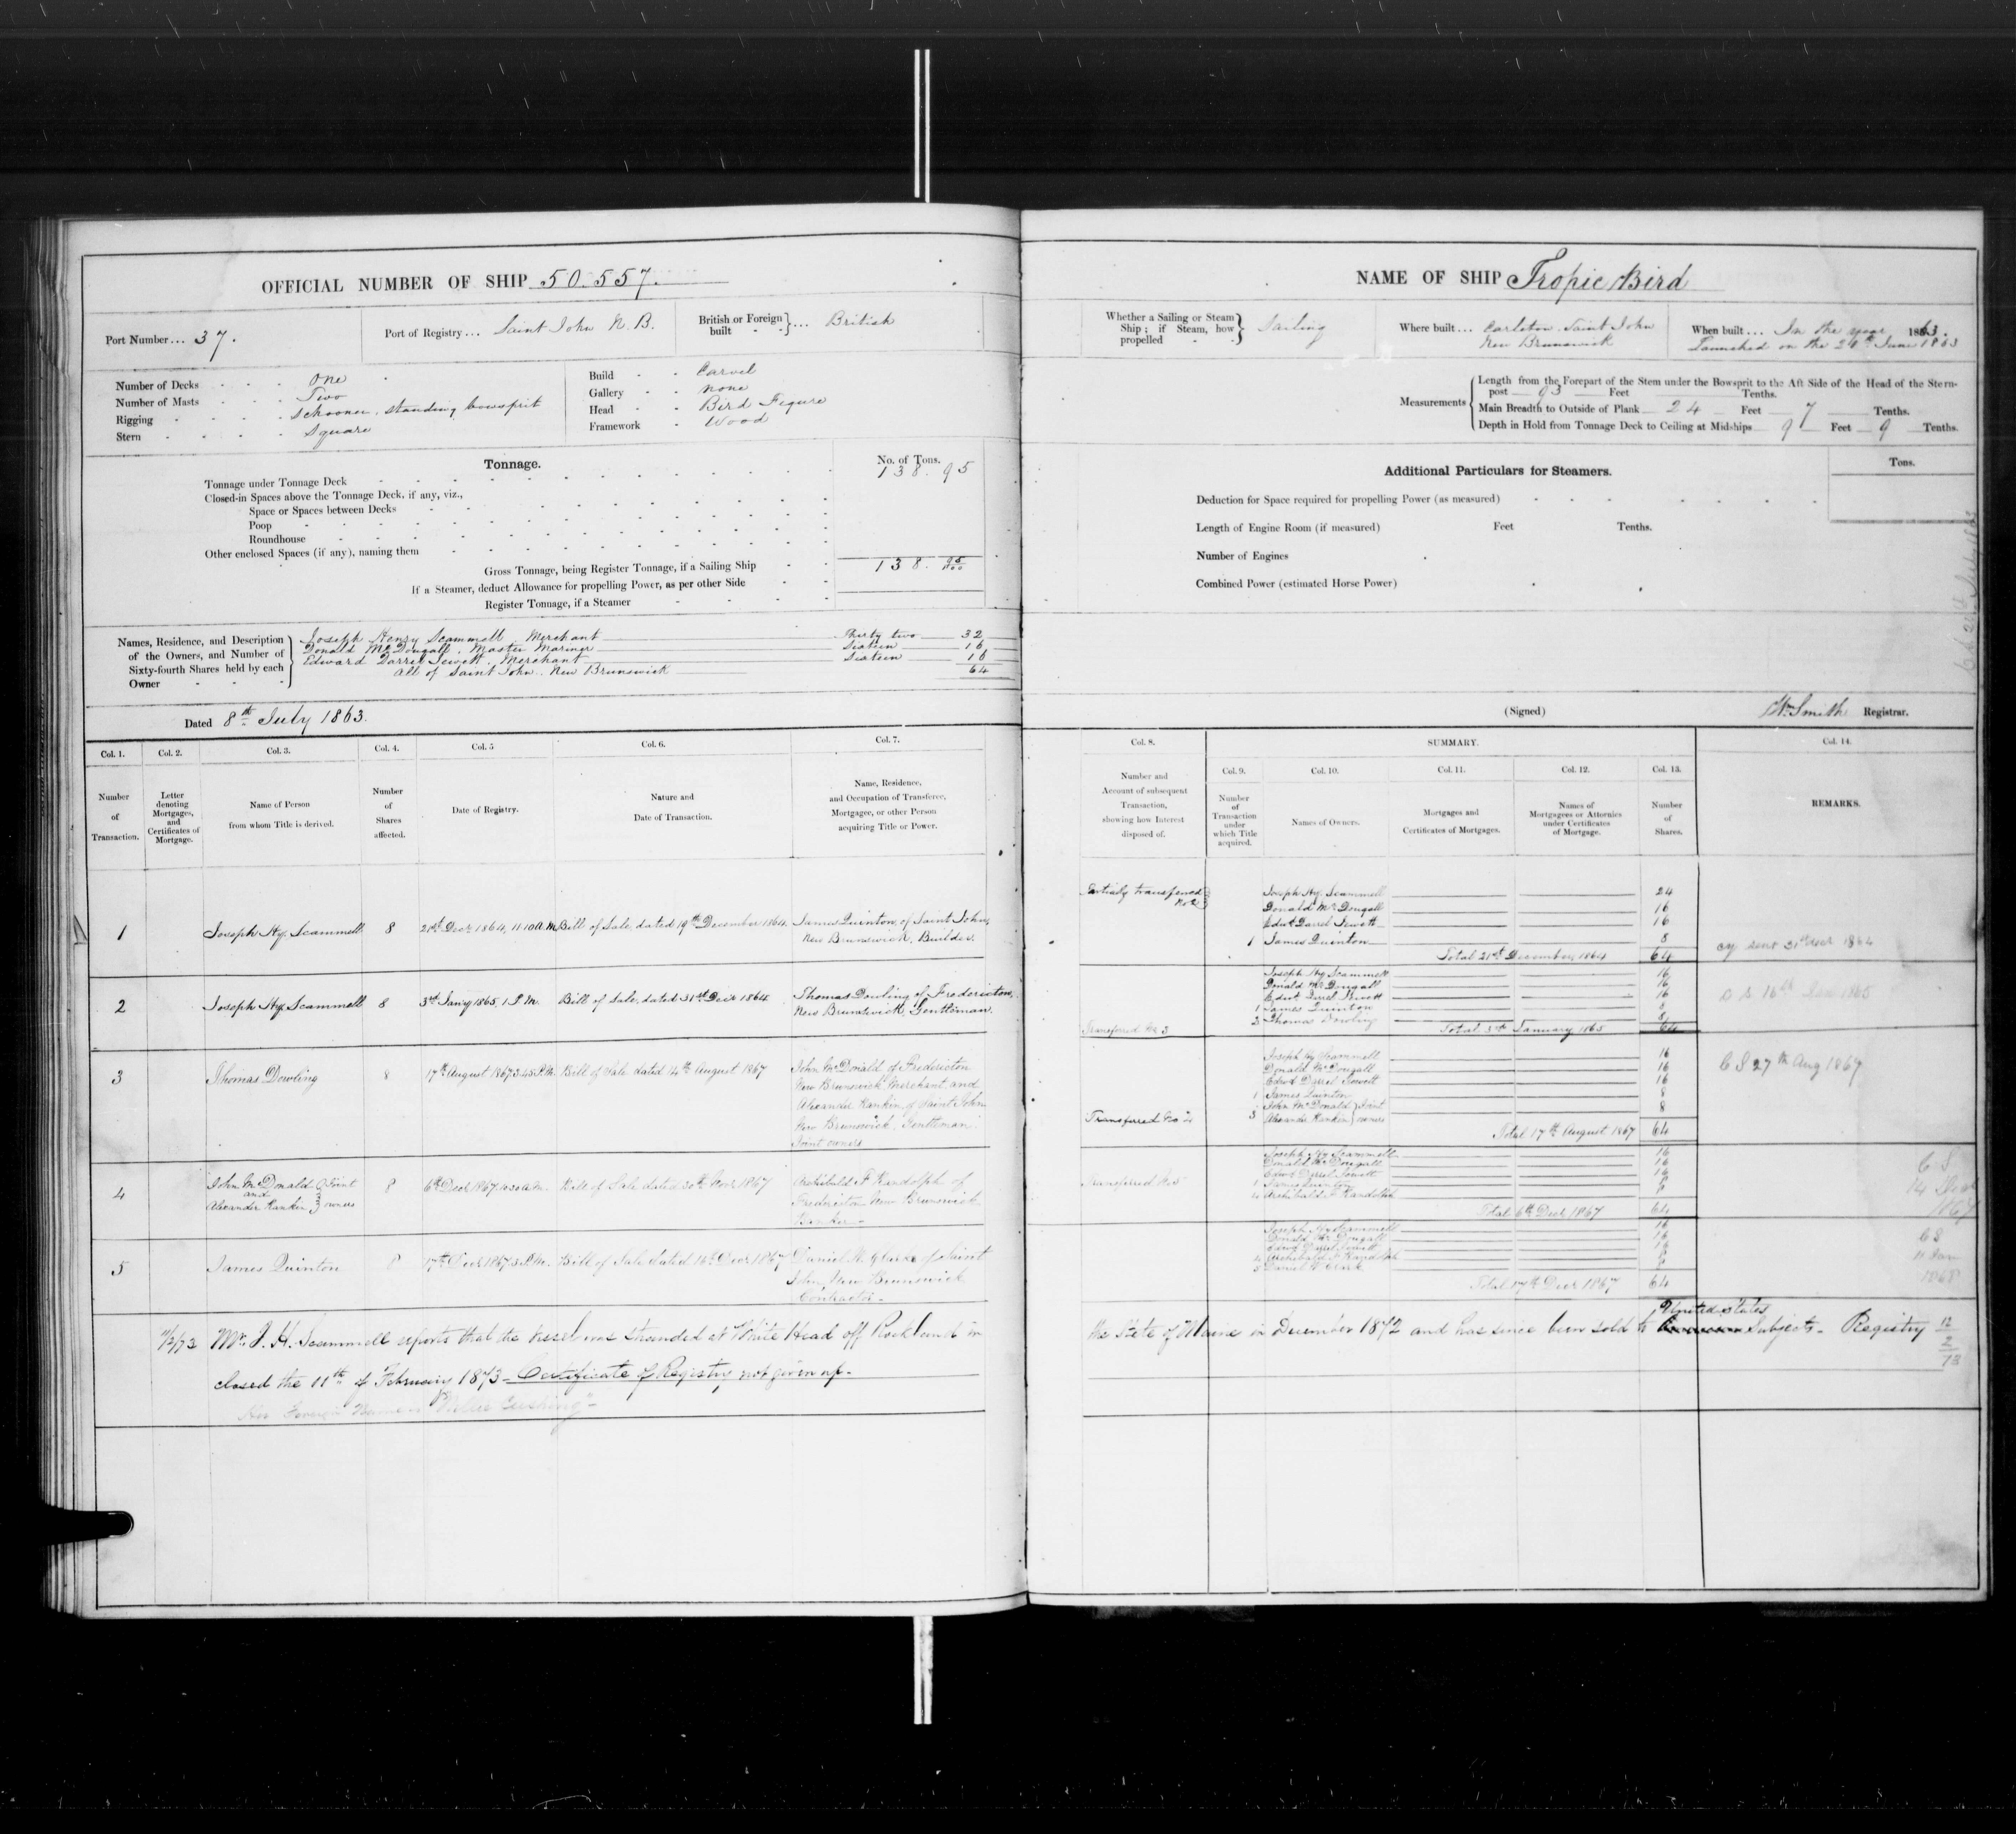 OFFICIAL NUMBER OF SHIP 50.557.
Port Number ... 37.
Port of Registry ... Saint John N.B.
British or Foreign built } ... British
Number of Decks - - - One
Number of Masts - - - Two
Rigging - - - - Schooner, standing bowsprit
Stern - - - - Square
Build - - Carvel
Gallery - - none
Head - - Bird Figure
Framework - Wood
Tonnage.
No. of Tons.
Tonnage under Tonnage Deck 138.95
Closed-in Spaces above the Tonnage Deck, if any, viz.,
Space or Spaces between Decks
Poop
Roundhouse
Other enclosed Spaces (if any), naming them
Gross Tonnage, being Register Tonnage, if a Sailing Ship 138.95/100
If a Steamer, deduct Allowance for propelling Power, as per other Side
Register Tonnage, if a Steamer
Names, Residence, and Description of the Owners, and Number of Sixty-fourth Shares held by each Owner
Joseph Henry Scammell, Merchant Thirty two 32
Donald McDougall, Master Mariner Sixteen 16
Edward Darrel Jewett, Merchant Sixteen 16
All of Saint John. New Brunswick 64
Dated 8th July 1863.
Col. 1. Col. 2. Col. 3. Col. 4. Col. 5 Col. 6. Col. 7.
Number of Transaction.
Letter denoting Mortgages, and Certificates of Mortgage.
Name of Person from whom Title is derived.
Number of Shares affected.
Date of Registry.
Nature and Date of Transaction.
Name, Residence, and Occupation of Transferee, Mortgagee, or other Person acquiring Title or Power.
1 Joseph Hy. Scammell 8 21st Decr 1864, 11.10 A.M. Bill of Sale, dated 19th December 1864. James Quinton, of Saint John,
New Brunswick, Builder.
2 Joseph Hy. Scammell 8 3rd Jany 1865, 1 P.M. Bill of Sale, dated 31st Decr 1864 Thomas Dowling of Fredericton,
New Brunswick, Gentleman.
3 Thomas Dowling 8 17th August 1867 3.45 P.M. Bill of Sale dated 14th August 1867 John McDonald of Fredericton
New Brunswick Merchant and
Alexander Rankin of Saint John
New Brunswick, Gentleman
Joint owners
4 John McDonald and Alexander Rankin } Joint owners 8 6th Decr 1867 10.30 A.M. Bill of Sale dated 30th Novr 1867 Archibald F Randolph of
Fredericton New Brunswick
Banker -
5 James Quinton 8 17th Decr 1867 3 P.M. Bill of Sale dated 16th Decr 1867 Daniel W. Clark of Saint
John, New Brunswick
Contractor -
11/2/73 Mr. J. H. Scammell reports that the vessel was stranded at White Head off Rockland in
closed the 11th of February 1873 - Certificate of Registry not given up -
Her Foreign Name is "Nellie Cushing" -
NAME OF SHIP Tropic Bird
Whether a Sailing or Steam Ship; if Steam, how propelled } Sailing
Where built ... Carleton, Saint John
New Brunswick
When built ... In the year 1863.
Launched on the June 1863
Measurements
Length from the Forepart of the Stem under the Bowsprit to the Aft Side of the Head of the Stern-
post 93 Feet Tenths.
Main Breadth to Outside of Plank 24 Feet 7 Tenths.
Depth in Hold from Tonnage Deck to Ceiling at Midships 9 Feet 9 Tenths.
Additional Particulars for Steamers.
Tons.
Deduction for Space required for propelling Power (as measured)
Length of Engine Room (if measured) Feet Tenths.
Number of Engines
Combined Power (estimated Horse Power)
(Signed) Wm Smith Registrar.
Col. 8. SUMMARY. Col. 14.
Col. 9. Col. 10. Col. 11. Col. 12. Col. 13.
Number and Account of subsequent Transaction, showing how Interest disposed of.
Number of Transaction under which Title acquired.
Names of Owners.
Mortgages and Certificates of Mortgages.
Names of Mortgagees or Attornies under Certificates of Mortgage.
Number of Shares.
REMARKS.
Partially transferred No 2
Joseph Hy. Scammell 24
Donald McDougall 16
Edwd Darrel Jewett 16
1 James Quinton 8
Total 21st December, 1864 64
cy sent 31st Decr 1864
Joseph Hy Scammell 16
Donald McDougall 16
Edwd Darrel Jewett 16
1 James Quinton 8
2 Thomas Dowling 8
Transferred No 3
Total 3rd January 1865 64
1865
Joseph Hy Scammell 16
Donald McDougall 16
Edwd Darrel Jewett 16
1 James Quinton 8
3 John McDonald Alexander Rankin } Joint owners 8
Transferred No 4
Total 17th August 1867 64
C S 27th Aug 1867
Joseph Hy Scammell 16
Donald McDougall 16
Edwd Darrel Jewett 16
1 James Quinton 8
4 Archibald F Randolph 8
Transferred No 5
Total 6th Decr 1867 64
C S
14 Decr
1867
Joseph Hy Scammell 16
Donald McDougall 16
Edwd Darrel Jewett 16
4 Archibald F Randolph 8
5 Daniel W Clark 8
Total 17th Decr 1867 64
C S
11 Jan
1868
the State of Maine in December 1872 and has since been sold to United States Subjects - Registry
12
2
73